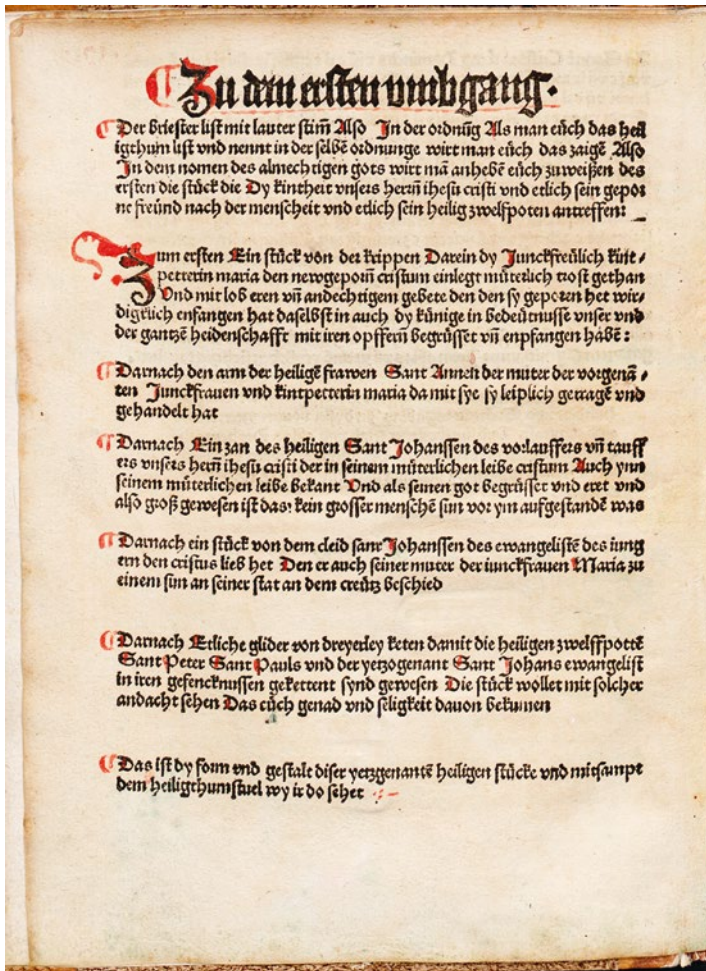 Zu dem ersten vmbgang.
Der briester list mit lauter stim̄ Also In der ordnūg Als man eüch das heil
igthum list vnd nennt in der selbē ordnunge wirt man eüch das zaigē Also
In dem nomen des almechtigen gots wirt mā anhebē eüch zu weißen des
ersten die stück die Dy kintheit vnsers herrn̄ ihesu cristi vnd etlich sein gepor
ne freünd nach der menscheit vnd etlich sein heilig zwelfpoten antreffen:
Zum ersten Ein stück von der krippen Darein dy Junckfreülich kint⸗
petterin maria den newgeporn̄ cristum einlegt müterlich trost gethan
Vnd mit lob eren vn̄ andechtigem gebete den den sy geporen het wir⸗
digklich enfangen hat daselbst in auch dy künige in bedeütnusse vnser vnd
der gantzē heidenschafft mit iren opffern̄ begrüsset vn̄ enpfangen habē:
Darnach den arm der heiligē frawen Sant Annen der muter der vorgenā⸗
ten Junckfrauen vnd kintpetterin maria da mit sye sy leiplich getragē vnd
gehandelt hat
Darnach Ein zan des heiligen Sant Johanssen des vorlauffers vn̄ tauff
ers vnsers herrn̄ ihesu cristi der in seinem müterlichen leibe cristum Auch ynn
seinem müterlichen leibe bekant Vnd als seinen got begrüsset vnd eret vnd
also groß gewesen ist das kein grosser menschē sun vor ym aufgestandē was
Darnach ein stück von dem cleid sant Johanssen des ewangelistē des iung
ern den cristus lieb het Den er auch seiner muter der iunckfrauen Maria zu
einem sun an seiner stat an dem creütz beschied
Darnach Etliche glider von dreyerley keten damit die heiligen zwelffpottē
Sant Peter Sant Pauls vnd der yetzogenant Sant Johans ewangelist
in iren gefencknussen gekettent synd gewesen Die stück wollet mit solcher
andacht sehen Das eüch genad vnd seligkeit dauon bekumen
Das ist dy form vnd gestalt diser yetzgenantē heiligen stücke vnd mitsampt
dem heiligthumstuel wy ir do sehet